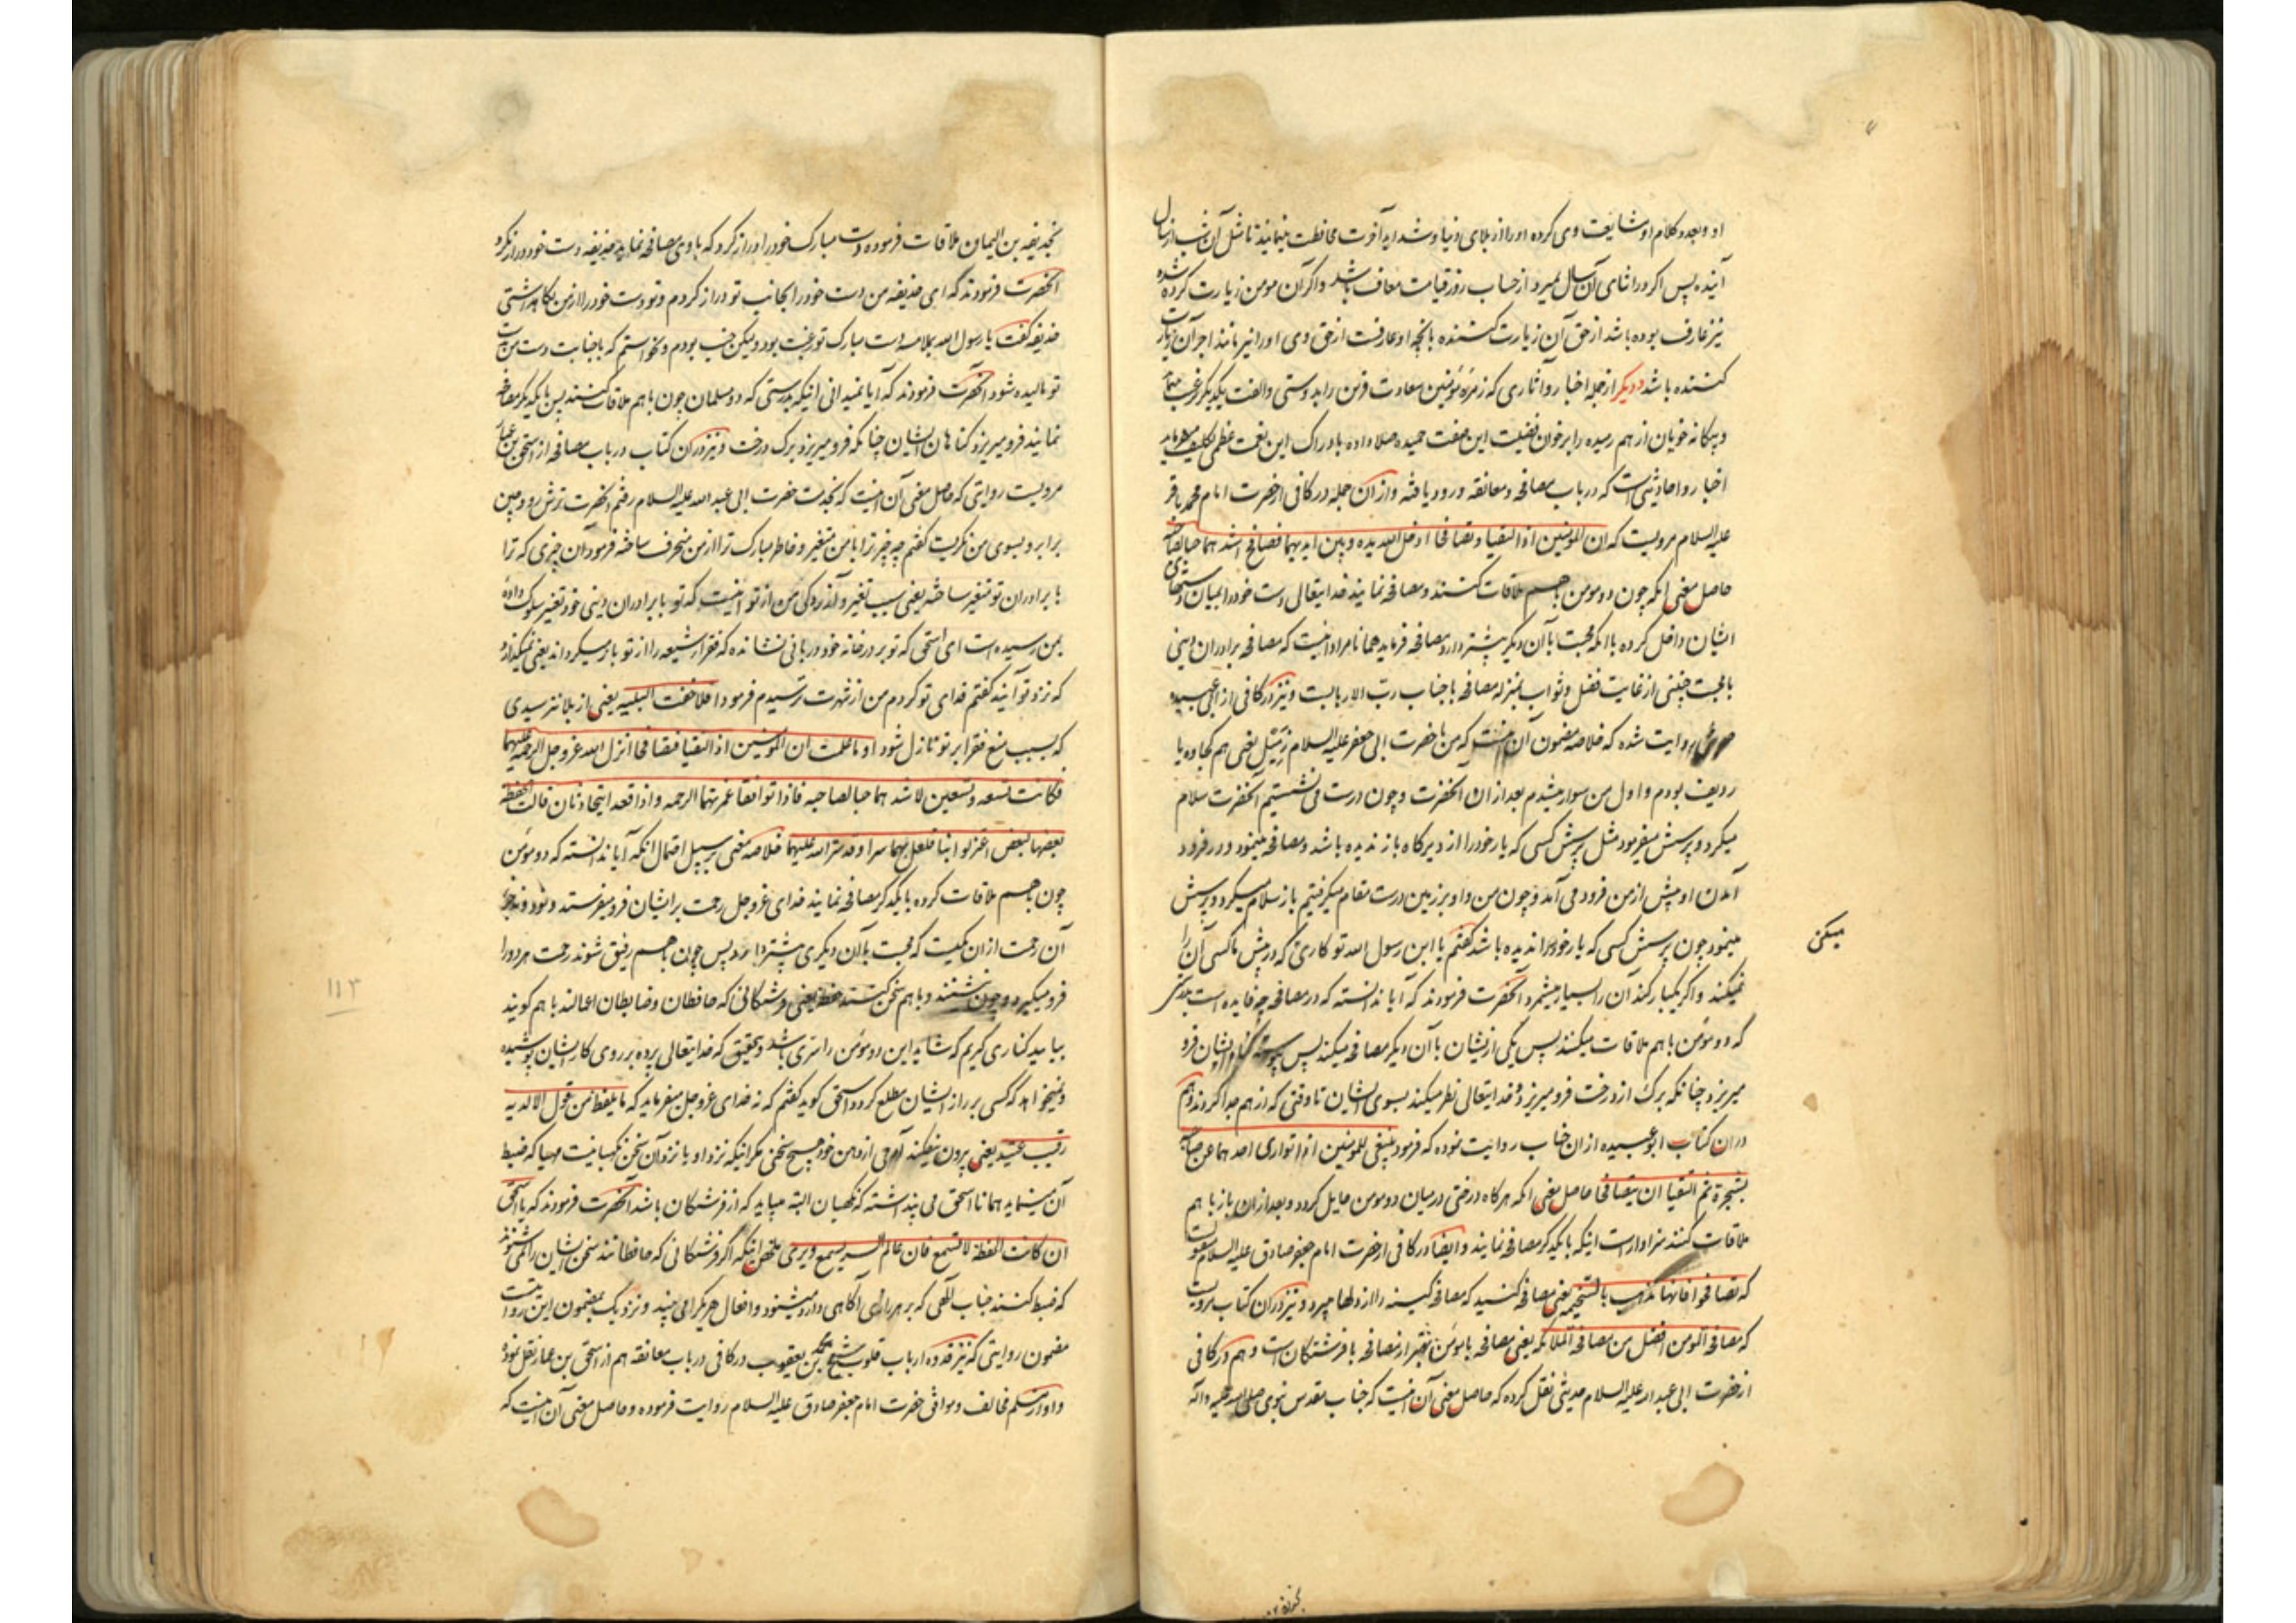 او وبعدد کلام او مشایعت وی کرده او را از بلای دنیا و شداید آخرت محافظت مینمایند تا مثل آن شب از سال
آینده پس اکر در اثنای آن سال بمیرد از حساب روز قیامت معاف باشد واکر آن مومن زیارت کرده شده
نیز عارف بوده باشد از حق آن زیارت کننده بانچه او عارفست از حق وی او را نیز مانند اجر آن زیارت
کننده باشد دیکر از جمله اخبار وآثاری که زمرۀ مؤمنین سعادت قرین را بدوستی والفت یکدیکر ترغیب
وبیکانه خویان از هم رمیده را بر خوان فضیلت این صفت حمیده صلا داده بادراک این نعمت عظمی تکلیف میفرماید
اخبار واحادیثی است که در باب مصافحه ومعانقه ورود یافته وازان جمله در کافی از حضرت امام محمد باقر
علیه السلام مرویست که ان المؤمنین اذا التقیا وتصافحا ادخل الله یده وبین ایدیهما فصافح اشدهما حبا لصاحبه
حاصل معنی انکه چون دو مومن باهم ملاقات کنند ومصافحه نمایند خدایتعالی دست خود را میان دستهای
ایشان داخل کرده با انکه محبت بآن دیکر بیشتر دارد مصافحه فرماید همانا مراد اینست که مصافحه برادران دینی
با محبت چنینی از غایت فضل وثواب بمنزله مصافحه با جناب رب الاربابست ونیز در کافی از ابی عبیده
روایت شده که خلاصه مضمون آن اینست که من با حضرت ابی جعفر علیه السلام زمیل یعنی هم کجاوه یا
ردیف بودم واول من سوار میشدم بعد ازان انحضرت وچون درست می نشستیم آنحضرت سلام
میکرد وپرسش میفرمود مثل پرسش کسی که یار خود را از دیرکاه باز ندیده باشد ومصافحه مینمود ودر فرود
آمدن او پیش از من فرود می آمد وچون من واو بر زمین درست مقام میکرفتیم باز سلام میکرد وپرسش
مینمود چون پرسش کسی که یار خود را ندیده باشد کفتم یا ابن رسول الله تو کاری که در پیش ما کسی آن را
نمیکند واکر یکبار کند آن را بسیار میشمرد آنحضرت فرمودند که آیا ندانسته که در مصافحه چه فایده است بدرستی
که دو مؤمن با هم ملاقات میکنند پس یکی از ایشان با آن دیکر مصافحه میکند پس پیوسته کناه ایشان فرو
میریزد چنانکه برک از درخت فرو میریزد وخدایتعالی نظر میکند بسوی ایشان تا وقتی که از هم جدا کردند وهم
دران کتاب ابو عبیده ازان جناب روایت نموده که فرمود ینبغی للمؤمنین اذا تواری احدهما عن صاحبه
بشجرة ثم التقیا ان یتصافحا حاصل معنی انکه هرکاه درختی در میان دو مومن حایل کردد وبعد ازان باز باهم
ملاقات کنند سزاوار است اینکه با یکدیکر مصافحه نمایند وایضا در کافی از حضرت امام جعفر صادق علیه السلام
که تصافحوا فانها تذهب بالسخیمه یعنی مصافحه کنید که مصافحه کینه را از دلها میبرد ونیز دران کتاب مرویست
که مصافحة المومن افضل من مصافحة الملائکه یعنی مصافحه با مؤمن بهتر از مصافحه با فرشتکان است وهم در کافی
از حضرت ابی عبد الله علیه السلام حدیثی نقل کرده که حاصل معنی آن اینست که جناب مقدس نبوی صلی الله علیه وآله
میکنی
بحذیفه بن الیمان ملاقات فرموده دست مبارک خود را دراز کرد که با وی مصافحه نماید حذیفه دست خود دراز نکرد
انحضرت فرمودند که ای حذیفه من دست خود را بجانب تو دراز کردم وتو دست خود را از من نکاهداشتی
حذیفه کفت یا رسول الله بملامسه دست مبارک تو رغبت بود ولیکن جنب بودم ونخواستم که با جنابت دست من بدست
تو مالیده شود انحضرت فرمودند که آیا نمیدانی اینکه بدرستی که دو مسلمان چون باهم ملاقات کنند پس با یکدیکر مصافحه
نمایند فرو میریزد کناهان ایشان چنانکه فرو میریزد برک درخت ونیز دران کتاب در باب مصافحه از اسحق بن عمار
مرویست روایتی که حاصل معنی آن اینست که بخدمت حضرت ابی عبد الله علیه السلام رفتم انحضرت ترش رو وچین
برابرو بسوی من نکریست کفتم چه چیز ترا با من متغیر وخاطر مبارک ترا از من منحرف ساخته فرمود آن چیزی که ترا
با برادران تو متغیر ساخته یعنی سبب تغیر وآزردکی من از تو اینست که تو با برادران دینی خود تغیر سلوک داده
بمن رسیده است ای اسحق که تو بر در خانه خود دربانی نشانده که فقراء شیعه را از تو باز میکرداند یعنی نمیکذارد
که نزد تو آیند کفتم فدای تو کردم من از شهرت ترسیدم فرمود افلا خفت البلیه یعنی از بلا نترسیدی
که بسبب منع فقرا بر تو نازل شود او ما علمت ان المؤمنین اذا التقیا فتصافحا انزل الله عز وجل الرحمة علیهما
فکانت تسعه وتسعین لاشدهما حبا لصاحبه فاذا توافقا غمرتهما الرحمه واذا قعدا یتحادثان قالت الحفظه
بعضها لبعض اعتزلوا بنا فلعل لهما سرا وقد ستر الله علیهما خلاصه معنی بر سبیل احتمال انکه آیا ندانسته که دو مؤمن
چون باهم ملاقات کرده با یکدیکر مصافحه نمایند خدای عز وجل رحمت بر ایشان فرو میفرستد ونود ونه جزء
آن رحمت ازان کسیست که محبت بآن دیکری بیشتر دارد پس چون باهم رفیق شوند رحمت هر دو را
فرو میکیرد وچون نشینند وباهم سخن کنند حفظه یعنی فرشتکانی که حافظان وضابطان اعمالند باهم کویند
بیایید کناری کریم که شاید این دو مؤمن را سری باشد وبتحقیق که خدایتعالی پرده بر روی کار ایشان پوشیده
ونمیخواهد که کسی بر راز ایشان مطلع کردد اسحق کوید کفتم که نه خدای عز وجل میفرماید که ما یلفظ من قول الا لدیه
رقیب عتید یعنی بیرون نمیفکند آدمی از دهن خود هیچ سخنی مکر اینکه نزد او یا نزد آن سخن نکهبانیست مهیا که ضبط
آن مینماید همانا اسحق می پنداشته که نکهبان البته میباید که از فرشتکان باشد انحضرت فرمودند که یا اسحق
ان کانت الحفظة لا تسمع فان عالم السر یسمع ویری ملخص اینکه اکر فرشتکانی که حافظانند سخن ایشان را نمی شنوند
که ضبط کنند جناب الهی که بر هر رازی آکاهی دارد میشنود وافعال هر یک را می بیند ونزدیک بمضمون این روایتست
مضمون روایتی که نیز قدوه ارباب قلوب شیخ محمد بن یعقوب در کافی در باب معانقه هم از اسحق بن عمار نقل نموده
واو از مسلم مخالف وموافق حضرت امام جعفر صادق علیه السلام روایت فرموده وحاصل معنی آن اینست که
۱۱۳